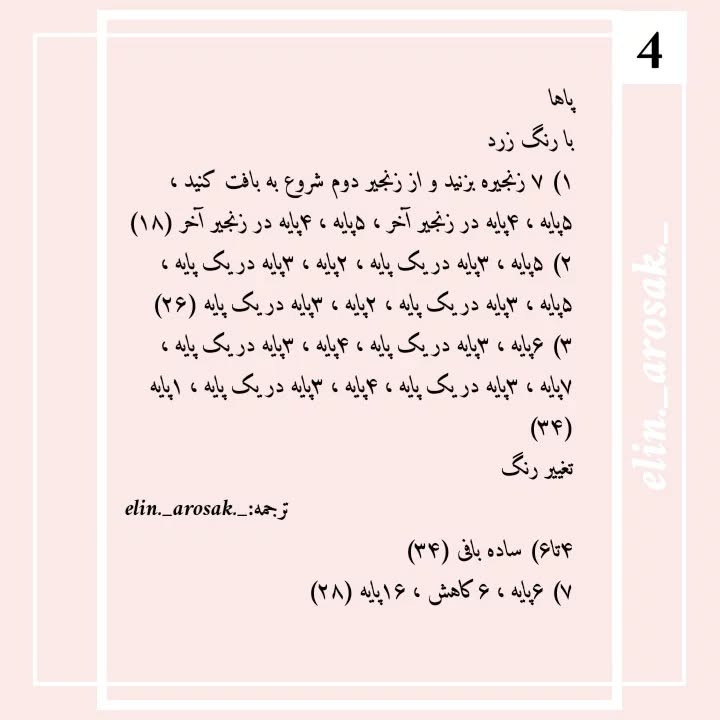 4
پاها
با رنگ زرد
۱) ۷ زنجیره بزنید و از زنجیر دوم شروع به بافت کنید ،
۵پایه ، ۴پایه در زنجیر آخر ، ۵پایه ، ۴پایه در زنجیر آخر (۱۸)
۲) ۵پایه ، ۳پایه در یک پایه ، ۲پایه ، ۳پایه در یک پایه ،
۵پایه ، ۳پایه در یک پایه ، ۲پایه ، ۳پایه در یک پایه (۲۶)
۳) ۶پایه ، ۳پایه در یک پایه ، ۴پایه ، ۳پایه در یک پایه ،
۷پایه ، ۳پایه در یک پایه ، ۴پایه ، ۳پایه در یک پایه ، ۱پایه
(۳۴)
تغییر رنگ
ترجمه:_.elin._arosak
۴تا۶) ساده بافی (۳۴)
۷) ۶پایه ، ۶ کاهش ، ۱۶پایه (۲۸)
elin._arosak._